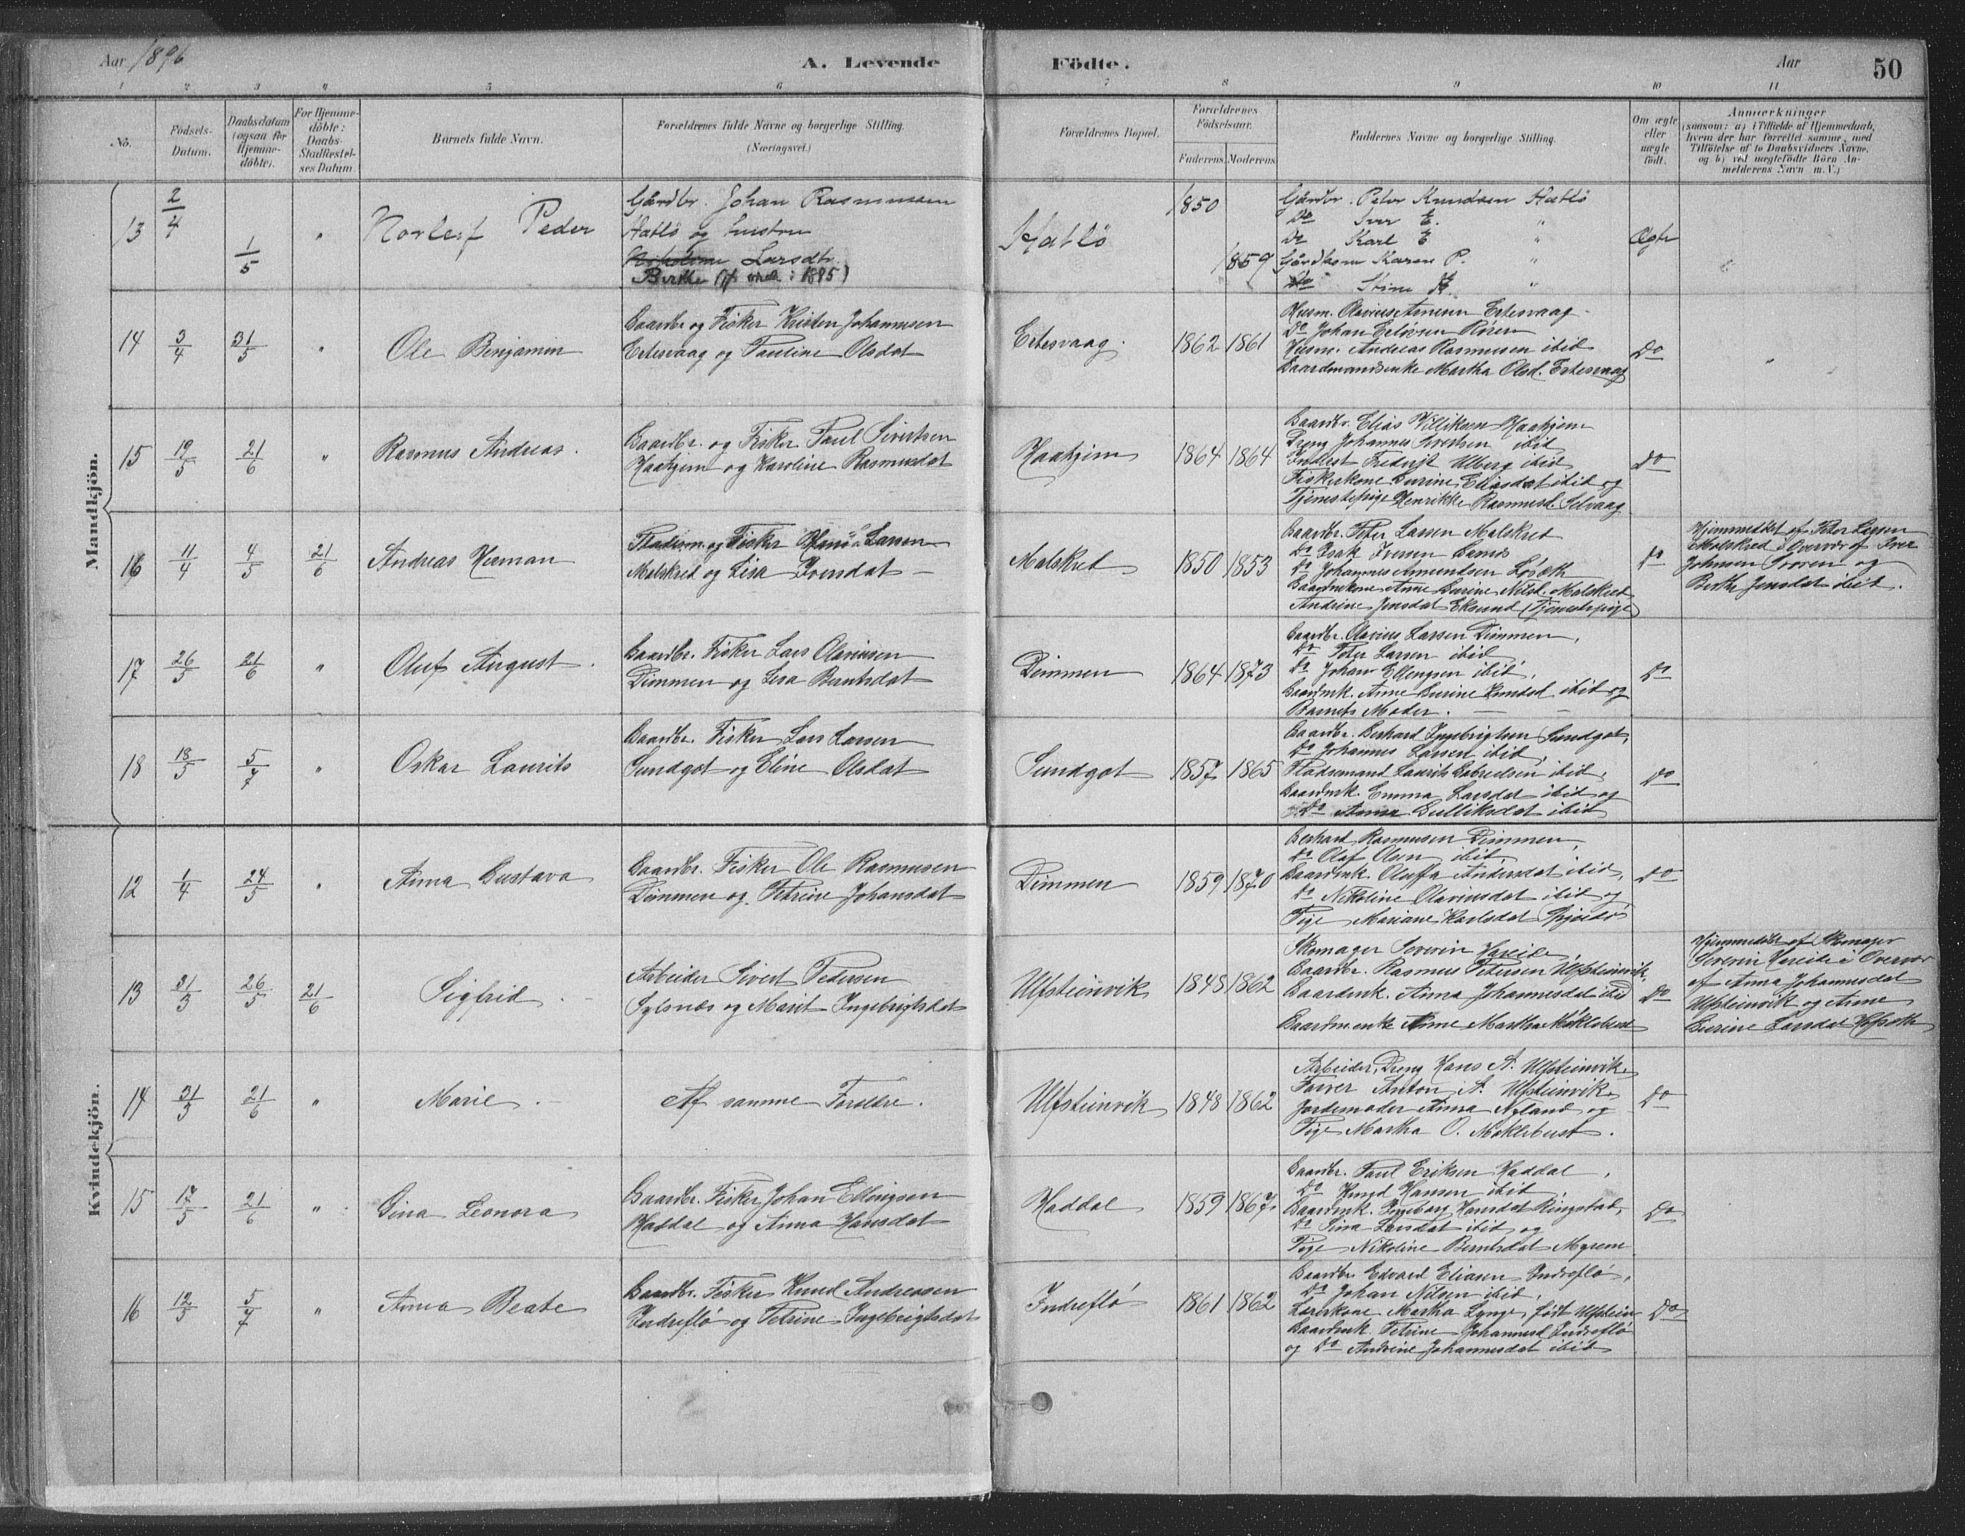 Aar 1896
A. Levende Födte.
Aar
50
1 2 3 4 5 6 7 8 9 10 11
No.
Födsels-Datum.
Daabsdatum (ogsaa for Hjemmedöbte).
For Hjemmedöbte: Daabs-Stadfæstelses Datum.
Barnets fulde Navn.
Forældrenes fulde Navne og borgerlige Stilling. (Næringsvei.)
Forældrenes Bopæl.
Forældrenes Födselsaar.
Faderens. Moderens.
Faddernes Navne og borgerlige Stilling.
Om ægte eller uægte födt.
Anmærkninger
(saasom: a) i Tilfælde af Hjemmedaab,
hvem der har forrettet samme, med
Tilföielse af to Daabsvidners Navne,
og b) ved uægtefödte Börn An-
melderens Navn m. V.)
Mandkjön.
13 2/4 1/5 " Norleif Peder
Gårdbr. Johan Rasmussen
Hatlö og hustru
Larsdtr.
Berthe (if. 1895)
Hatlö 1850 1859
Gårdbr. Peter Knudsen Hatlö
Do Iver E. "
Do Karl E "
Gårdkone Karen P. "
Do Stine "
Ægte
14 3/4 31/5 " Ole Benjamin
Gaardbr og Fisker Kristen Johannesen
Ertesvaag og Pauline Olsdat
Ertesvaag. 1862 1861
Husm. Olavius Ertesvaag.
Do Johan Rören
Husm. Andreas Rasmusen ibid
Gaardmandsenke Martha Olsd. Ertesvaag
Do "
15 19/5 21/6 " Rasmus Andreas.
Gaardbr. og Fisker Paul Sivertsen
Haahjem og Karoline Rasmusdat
Haahjem 1864 1864
Gaardbr. Elias Villiksen Haahjem
Dreng Johannes Sivertsen ibid
Inderst Fredrik Ulberg ibid
Fiskerkone Gurine Eliasdat ibid og
Tjenestepige Henrikke Rasmusd. Selvaag
Do
16 11/4 4/5 21/6 Andreas Herman
Pladsm. og Fisker Larsen
Molskred og Lisa Ivensdat
Molskred 1850 1853
Gaardbr. Peter Larsen Molskred
Do Isak Iversen
Do Johannes Amundsen Løseth
Gaardmkone Anne Gurine Nilsd. Molskred
Andrine Jensdat Eksund (Tjenestepige)
Do
Hjemmedöbt af Peter Larsen
Molskred i Overvær af Iver
Johnsen og
Berthe Jensdat ibid.
17 26/5 21/6 " Oluf August.
Gaardbr. Fisker Lars Olavusen
Dimmen og Lisa Berntsdat
Dimmen 1864 1873
Gaardbr. Olavius Larsen Dimmen,
Do Peter Larsen ibid
Do Johan Ellingsen ibid,
Gaardmk. Anne Gurine ibid og
Barnets Moder.
Do
18 18/5 5/7 " Oskar Laurits
Gaardbr. Fisker Lars Larsen
Sundgot og Eline Olsdat
Sundgot 1857 1865
Gaardbr. Berhard Ingebrigtsen Sundgot,
Do Johannes Larsen ibid,
Pladsemand Laurits Gabrielsen ibid,
Gaardmk. Emma Larsdat ibid og
Do Anna Gulliksdat ibid
Do
Kvindekjön.
12 1/4 24/5 " Anna Gustava
Gaardbr. Fisker Ole Rasmusen
Dimmen og Petrine Johansdat
Dimmen 1859 1870
Berhard Rasmusen Dimmen,
Do Olaf Olsen ibid,
Gaardmk. Oluffa Andersdat ibid,
Do Nikoline Olaviusdat ibid og
Pige Mariane Karlsdat
Do
13 31/3 26/5 21/6 Sigfrid
Arbeider Sivert Pedersen
Sylsnæs og Marit Ingebrigtsdat
Ulfsteinvik 1848 1862
Skomager Severin Hareide,
Gaardbr. Rasmus Petersen Ulfsteinvik,
Gaardmk. Anna Johannesdat ibid
Gaardmenke Anne Martha Moklebust
Do
Hjemmedöbt af Skomager
Severin Hareide i Overvær
af Anna Johannesdat
Ulfsteinvik og Anne
Gurine Larsdat
14 31/3 21/6 " Marie
Af samme Forældre.
Ulfsteinvik 1848 1862
Arbeider, Dreng Hans A. Ulfsteinvik,
Farver Anton A. Ulfsteinvik,
Jordemoder Anna Nyland og
Pige Martha O. Moklebust.
Do
15 17/5 21/6 " Gina Leonora
Gaardbr. Fisker Johan Ellingsen
Haddal og Anna Hansdat
Haddal 1859 1867
Gaardbr. Paul Eriksen Haddal,
Do Knud Hansen ibid
Gaardmk. Ingeborg Hansdat Ringstad,
Do Larsdat ibid og
Pige Nikoline Berntsdat Myrene
Do
16 12/5 5/7 " Anna Beate
Gaardbr. Fisker Knud Andreasen
Indreflö og Petrine Ingebrigtsdat
Indreflö 1861 1862
Gaardbr Edvard Eliasen Indreflö,
Do Johan Nilsen ibid,
Lærerkone Martha Lynge, født Ulfstein
Gaardmk. Petrine Johannesd. Indreflö
og Do Andrine Johannesdat ibid
Do